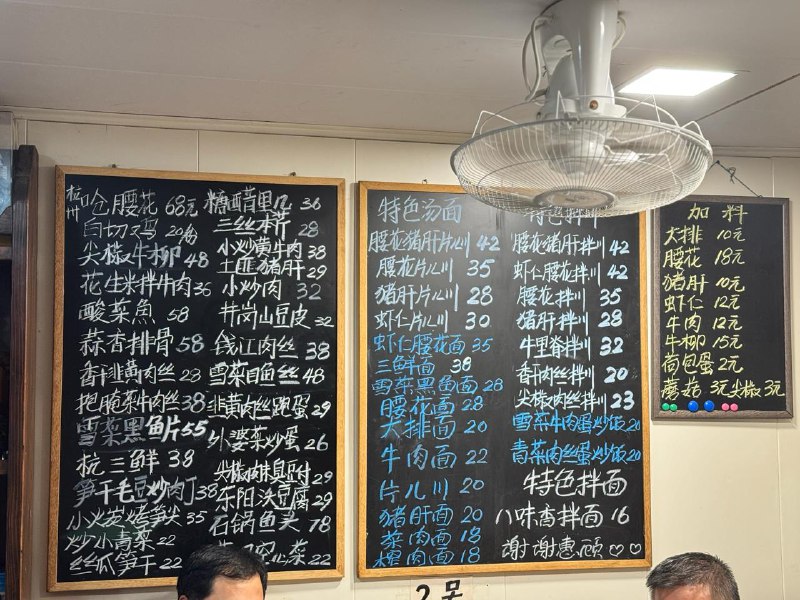 杭州
炝腰花 68元
白切鸡
尖椒牛柳 48
花生米拌牛肉 36
酸菜魚 58
蒜香排骨 58
香干韭黄肉丝 23
抱腌菜牛肉 38
雪菜黑鱼片 55
杭三鲜 38
笋干毛豆炒肉丁 38
小火炭烤笋尖 35
炒小青菜 22
丝瓜笋干 22
糖醋里几 36
三丝春芹 28
小炒黄牛肉 38
土匪猪肝 29
小炒肉 32
井岗山豆皮 32
钱江肉丝 38
雪菜目鱼丝 48
韭黄肉丝跑蛋 29
外婆菜炒蛋 26
尖椒肉拌臭豆付 29
东阳沃豆腐 29
石锅鱼头 78
空心菜 22
特色汤面
腰花猪肝片儿川 42
腰花片儿川 35
猪肝片儿川 28
虾仁片儿川 30
虾仁腰花面 35
三鲜面 38
雪菜黑鱼面 28
腰花面 28
大排面 20
牛肉面 22
片儿川 20
猪肝面 20
菜肉面 18
榨肉面 18
腰花猪肝拌川 42
虾仁腰花拌川 42
腰花拌川 35
猪肝拌川 28
牛里脊拌川 32
香干肉丝拌川 20
尖椒肉丝拌川 23
雪菜牛肉蛋炒饭 20
青菜肉丝蛋炒饭 20
特色拌面
八味香拌面 16
谢谢惠顾♡♡
加料
大排 10元
腰花 18元
猪肝 10元
虾仁 12元
牛肉 12元
牛柳 15元
荷包蛋 2元
蘑菇 3元 尖椒 3元